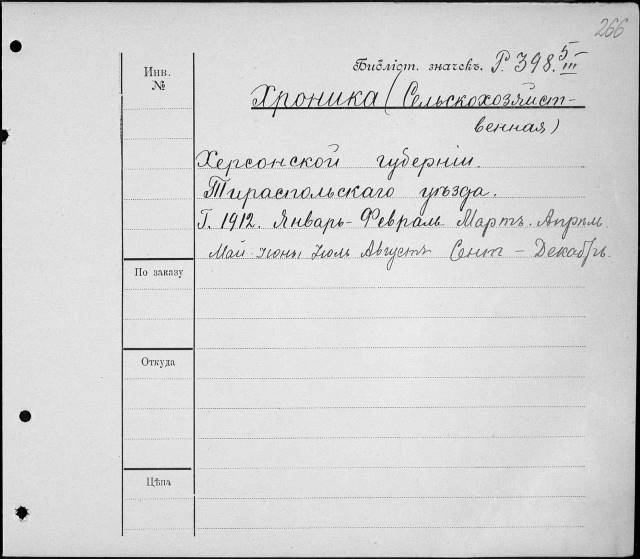 266
Библіот. значекъ. Р. 398. 5/III
Инв.
№
Хроника (Сельскохозяйст-
венная)
Херсонской губерніи.
Тираспольскаго уѣзда.
Г. 1912. Январь - Февраль Мартъ. Апрѣль
Май - Іюнь, Іюль Августъ Сент - Декабрь.
По заказу
Откуда
Цѣна